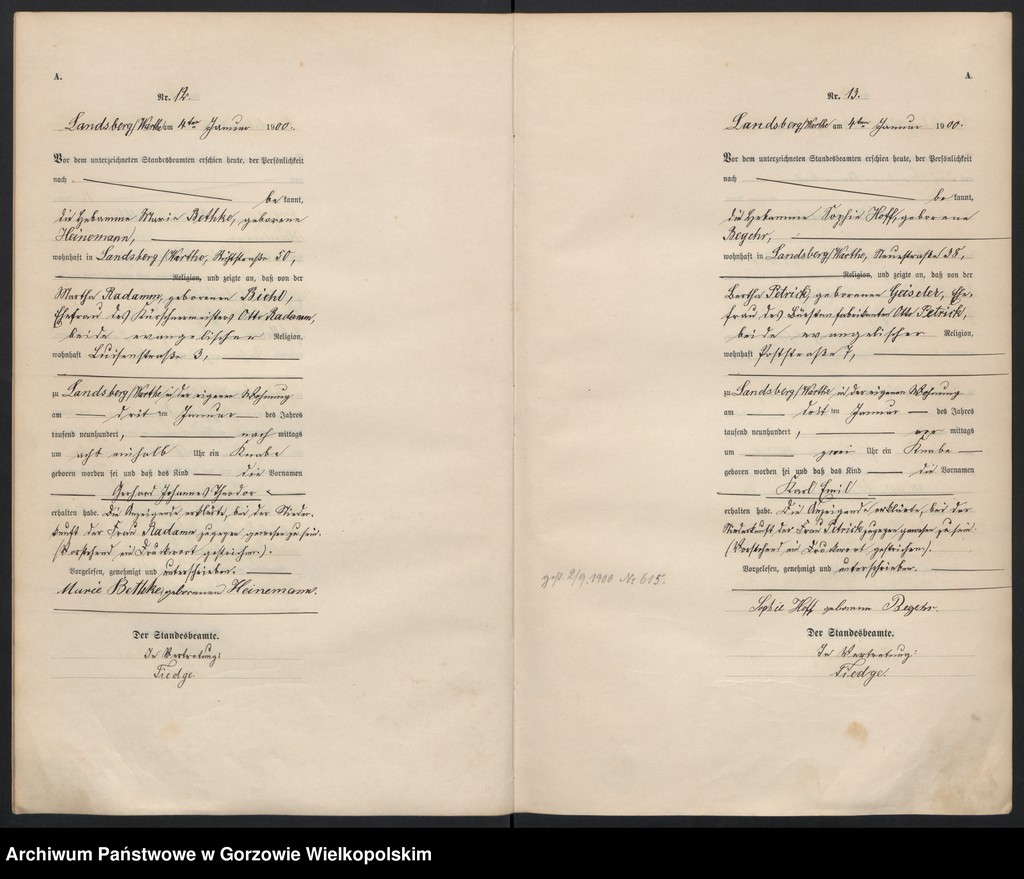 A.
Nr. 12.
Landsberg/Warthe am 4ten Januar 1900.
Vor dem unterzeichneten Standesbeamten erschien heute, der Persönlichkeit
nach
bekannt,
die Hebamme Marie Bethke, geborene
Heinemann,
wohnhaft in Landsberg/Warthe, Richtstraße 50,
Religion, und zeigte an, daß von der
Martha Radamm, geborenen Biehl,
Ehefrau des Kürschnermeisters Otto Radamm,
beide evangelischer Religion,
wohnhaft Luisenstraße 3,
zu Landsberg/Warthe, in der eigenen Wohnung
am dritten Januar des Jahres
tausend neunhundert, nachmittags
um acht einhalb Uhr ein Knabe
geboren worden sei und daß das Kind die Vornamen
Gerhard Johannes Theodor
erhalten habe. Die Anzeigende erklärte, bei der Nieder-
kunft der Frau Radamm zugegen gewesen zu sein.
(Vorstehend ein Druckwort gestrichen.)
Vorgelesen, genehmigt und unterschrieben.
Marie Bethke, geborenen Heinemann.
Der Standesbeamte.
In Vertretung:
Tiedge.
A
Nr. 13.
Landsberg/Warthe am 4ten Januar 1900.
Vor dem unterzeichneten Standesbeamten erschien heute, der Persönlichkeit
nach
bekannt,
die Hebamme Sophie Hoff, geborene
Begehr,
wohnhaft in Landsberg/Warthe, Neuestraße 38,
Religion, und zeigte an, daß von der
Bertha Petrick, geborenen Geiseler, Ehe-
frau des Bürstenfabrikanten Otto Petrick,
beide evangelischer Religion,
wohnhaft Poststraße 7,
zu Landsberg/Warthe in der eigenen Wohnung
am dritten Januar des Jahres
tausend neunhundert, vormittags
um zwei Uhr ein Knabe
geboren worden sei und daß das Kind die Vornamen
Karl Emil
erhalten habe. Die Anzeigende erklärte, bei der
Niederkunft der Frau Petrick zugegen gewesen zu sein.
(Vorstehend ein Druckwort gestrichen.)
Vorgelesen, genehmigt und unterschrieben.
Sophie Hoff geborene Begehr.
Der Standesbeamte.
In Vertretung:
Tiedge.
2/9.1900 Nr 615.
Archiwum Państwowe w Gorzowie Wielkopolskim